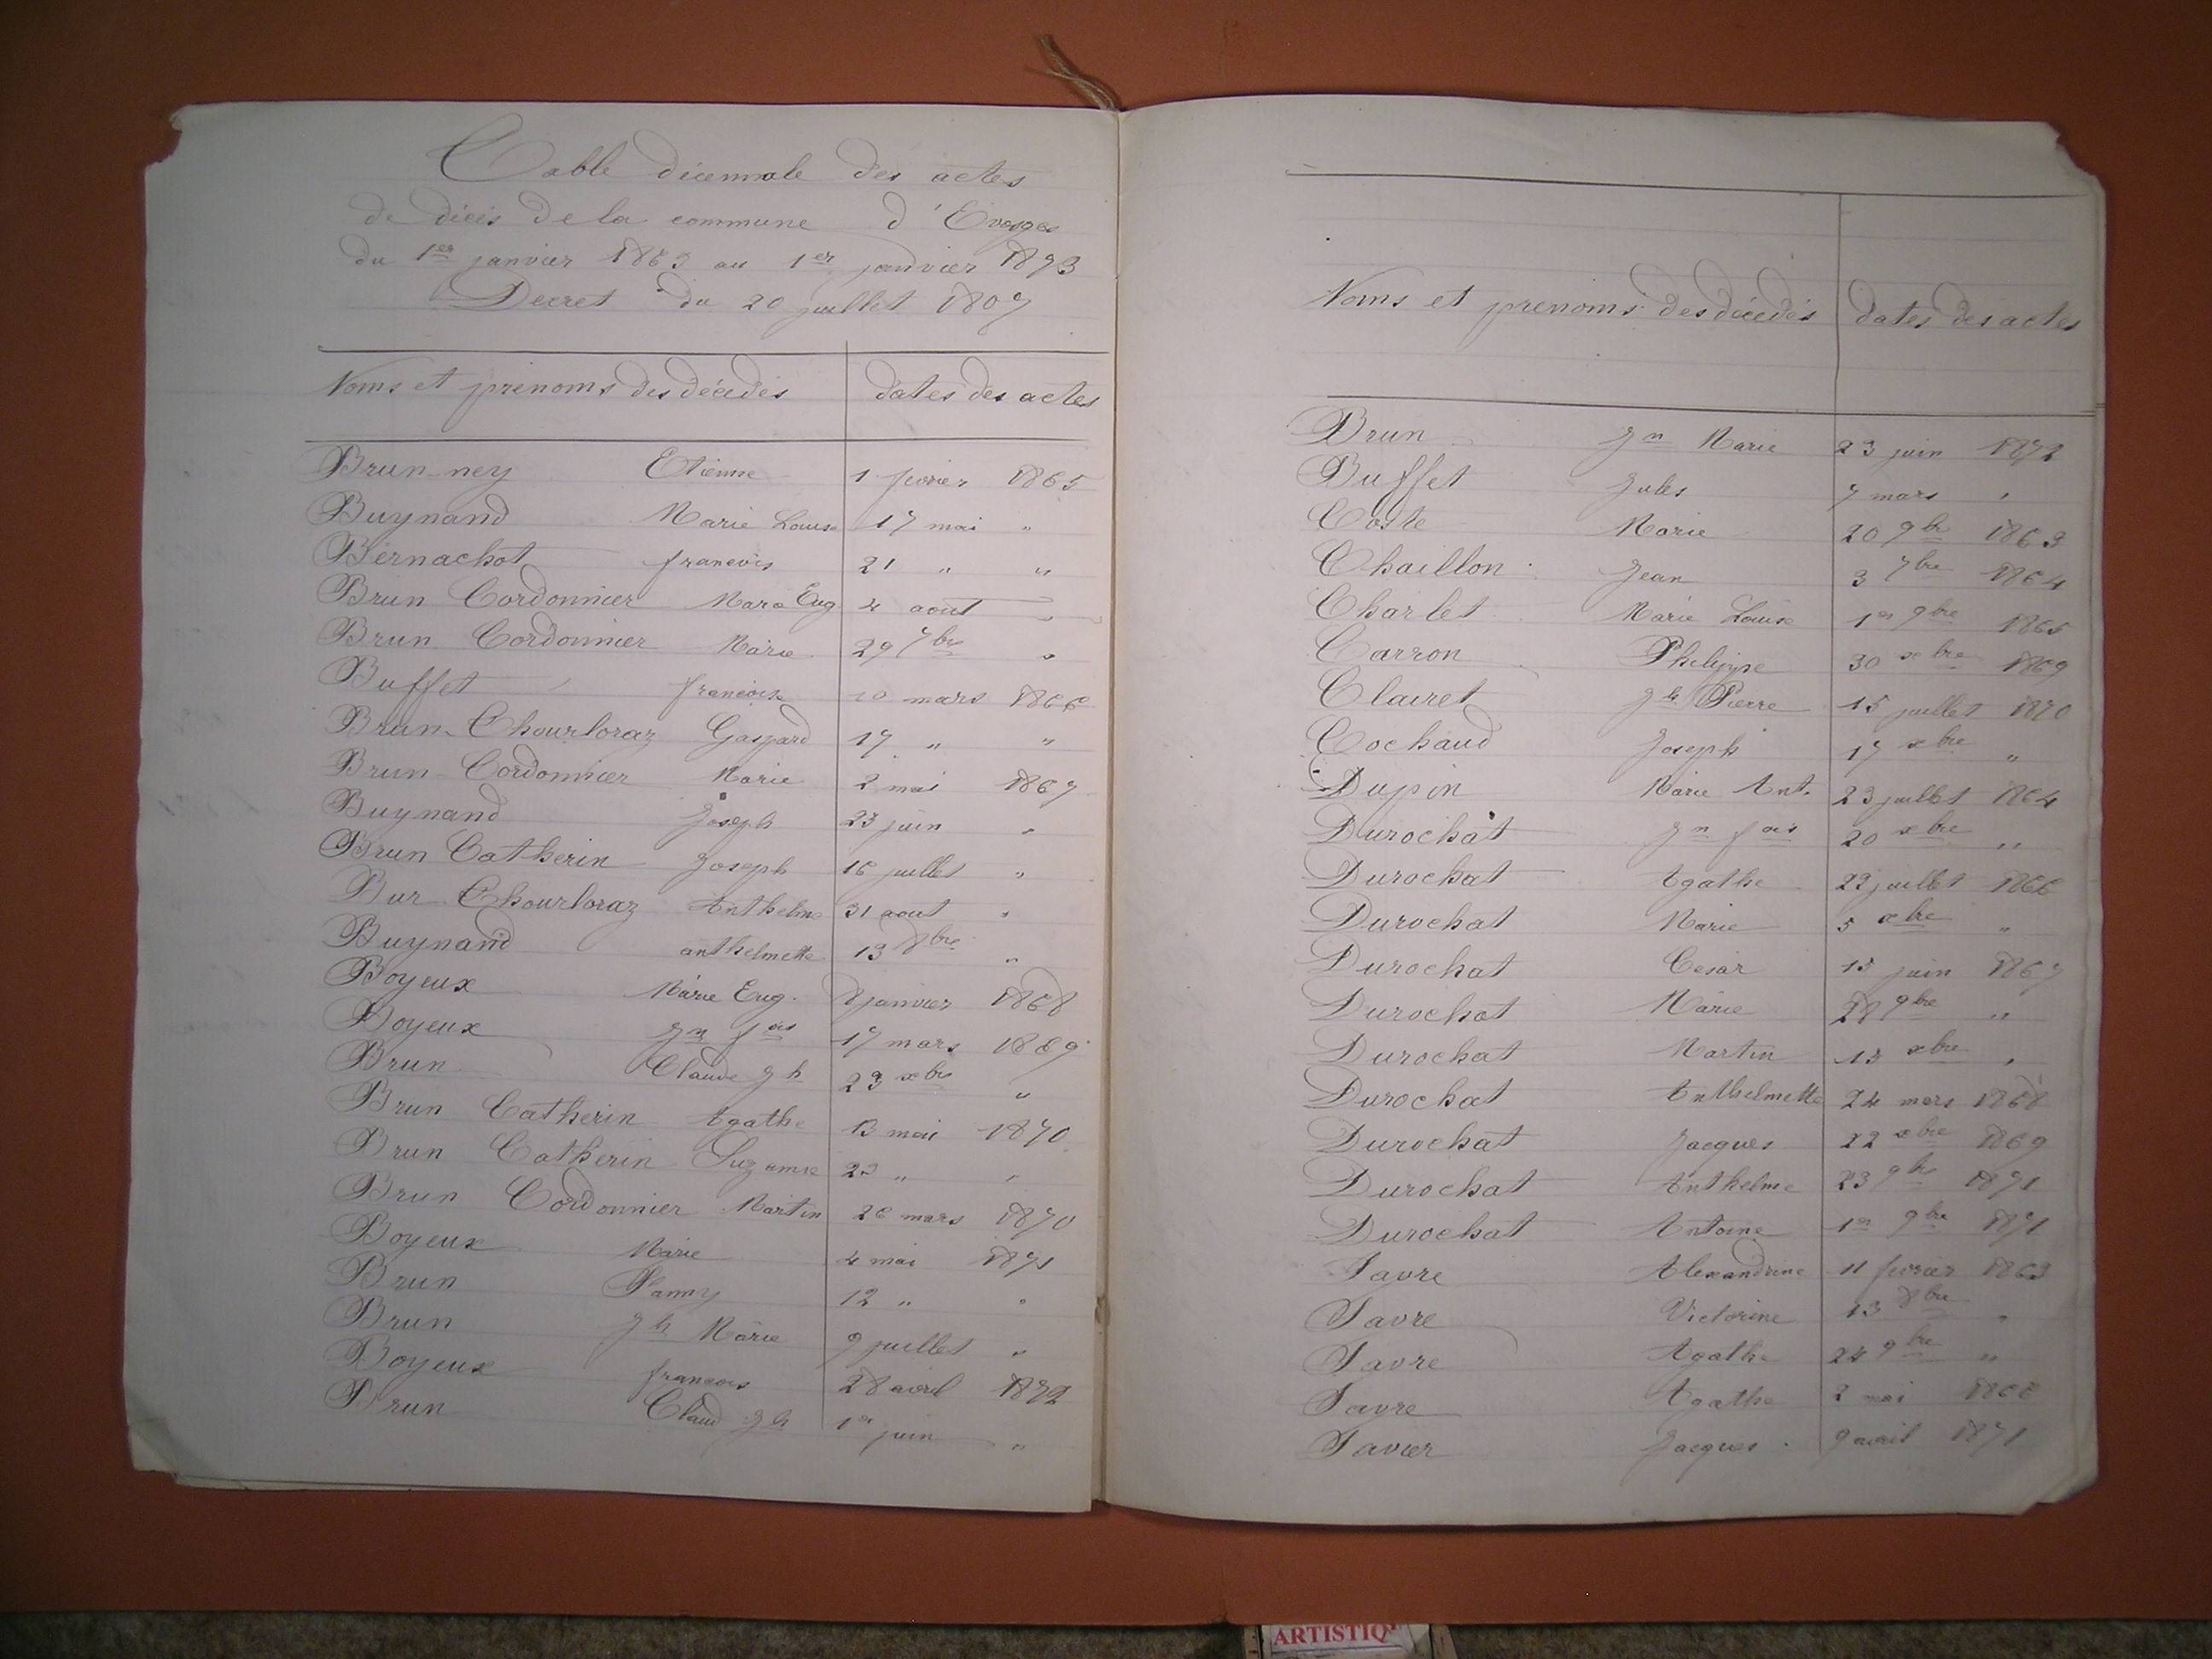 Table décennale des actes
de décès de la commune d'Evosges
du 1er janvier 1863 au 1er janvier 1873
Decret du 20 juillet 1807
Noms et prénoms des décédés dates des actes
Brun-ney Etienne 1 février 1865
Buynand Marie Louise 17 mai "
Bernachot francois 21 " "
Brun Cordonnier Marie Eug. 4 aout "
Brun Cordonnier Marie 29 7bre "
Buffet francoise 10 mars 1866
Brun-Chourloraz Gaspard 17 " "
Brun-Cordonnier Marie 2 mai 1867
Buynand Joseph 23 juin "
Brun Catherin Joseph 16 juillet "
Bur Chourloraz Anthelme 31 aout "
Buynand anthelmette 13 8bre "
Boyeux Marie Eug. 8 janvier 1868
Boyeux Jn fois 17 mars 1869
Brun Claude Jh 23 xbre "
Brun Catherin Agathe 13 mai 1870
Brun Catherin Suzanne 23 " "
Brun Cordonnier Martin 26 mars 1870
Boyeux Marie 4 mai 1871
Brun Fanny 12 " "
Brun Jh Marie 9 juillet "
Boyeux francois 28 avril 1872
Brun Claud Jh 1er juin "
Noms et prenoms des décédés dates des actes
Brun Jn Marie 23 juin 1872
Buffet Jules 7 mars "
Coste Marie 20 9bre 1863
Chaillon Jean 3 7bre 1864
Charlet Marie Louise 1er 9bre 1865
Carron Philippe 30 xbre 1869
Clairet Jh Pierre 15 juillet 1870
Cochaud Joseph 17 xbre "
Dupin Marie Ant. 23 juillet 1864
Durochat Jn fois 20 xbre "
Durochat Agathe 22 juillet 1866
Durochat Marie 5 xbre "
Durochat Cesar 15 juin 1867
Durochat Marie 28 9bre "
Durochat Martin 13 xbre "
Durochat Anthelmette 24 mars 1868
Durochat Jacques 22 xbre 1869
Durochat Anthelme 23 9bre 1871
Durochat Antoine 1er 9bre 1871
Favre Alexandrine 11 février 1863
Favre Victorine 13 8bre "
Favre Agathe 24 9bre "
Favre Agathe 2 mai 1868
Favier Jacques 9 avril 1871
ARTISTIQ